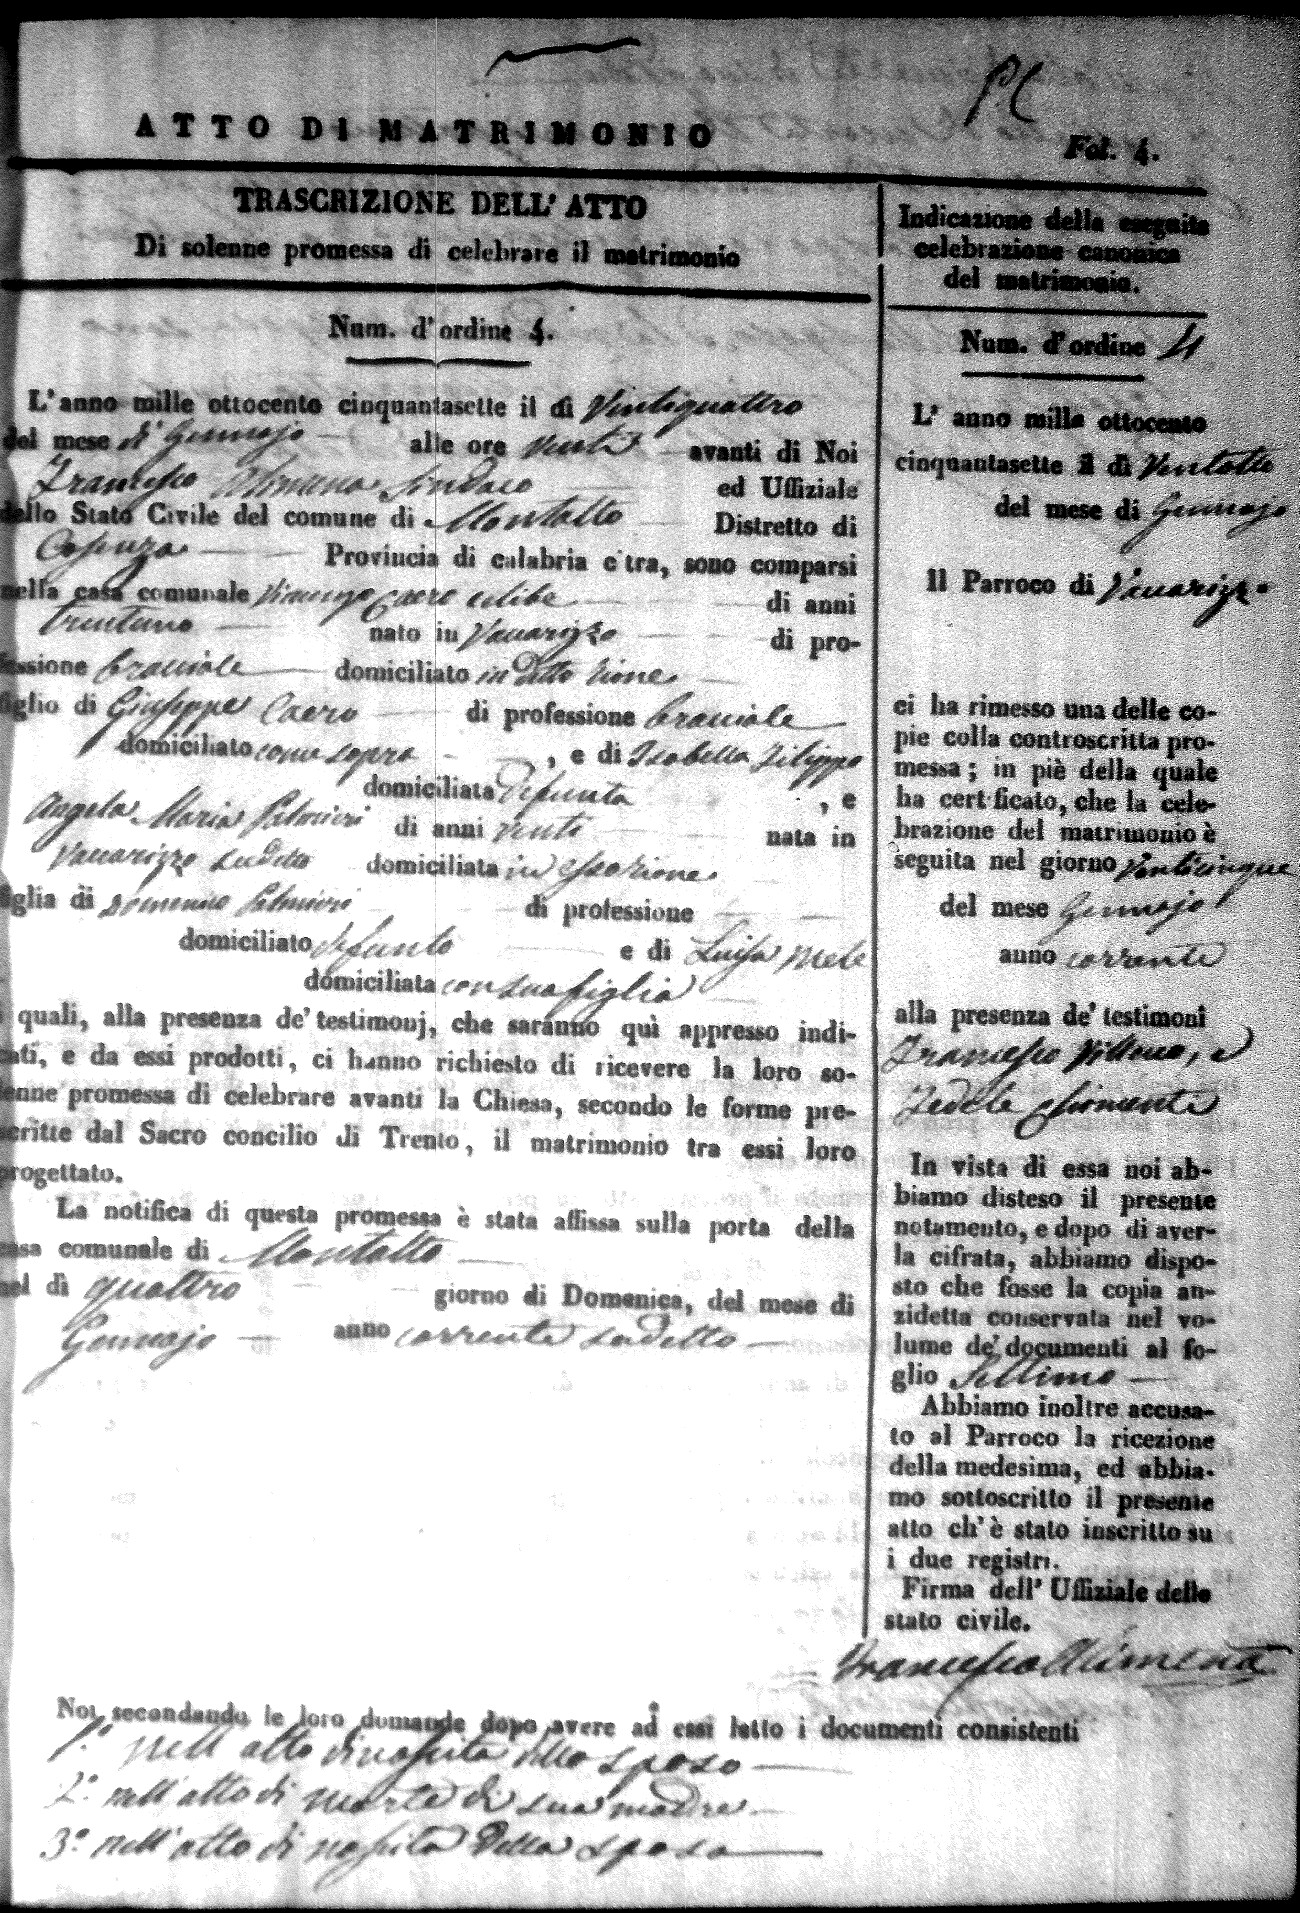 Pl
ATTO DI MATRIMONIO
Fol. 4.
TRASCRIZIONE DELL' ATTO
Di solenne promessa di celebrare il matrimonio
Num. d' ordine 4.
L'anno mille ottocento cinquantasette il dì Ventiquattro
del mese di Gennajo alle ore venti avanti di Noi
Francesco Alimena Sindaco ed Uffiziale
dello Stato Civile del comune di Montalto Distretto di
Cosenza Provincia di calabria citra, sono comparsi
nella casa comunale Vicenzo Caero celibe di anni
trentuno nato in Vaccarizzo di pro-
fessione braciale domiciliato in detto rione
figlio di Giuseppe Caero di professione braciale
domiciliato come sopra , e di Isabella Filippo
domiciliata defunta , e
Angela Maria Palmieri di anni venti nata in
Vaccarizzo sudetto domiciliata in esso rione
figlia di Domenico Palmieri di professione
domiciliato defunto e di Luisa Mele
domiciliata con sua figlia
i quali, alla presenza de' testimonj, che saranno quì appresso indi-
cati, e da essi prodotti, ci hanno richiesto di ricevere la loro so-
lenne promessa di celebrare avanti la Chiesa, secondo le forme pre-
scritte dal Sacro concilio di Trento, il matrimonio tra essi loro
progettato.
La notifica di questa promessa è stata affissa sulla porta della
casa comunale di Montalto
nel dì quattro giorno di Domenica, del mese di
Gennajo anno corrente sudetto
Indicazione della eseguita
celebrazione canonica
del matrimonio.
Num. d' ordine 4
L' anno mille ottocento
cinquantasette il dì Ventotto
del mese di Gennajo
Il Parroco di Vaccarizzo
ci ha rimesso una delle co-
pie colla controscritta pro-
messa; in piè della quale
ha certificato, che la cele-
brazione del matrimonio è
seguita nel giorno venticinque
del mese Gennajo
anno corrente
alla presenza de' testimoni
Francesco , e
Fedele
In vista di essa noi ab-
biamo disteso il presente
notamento, e dopo di aver-
la cifrata, abbiamo dispo-
sto che fosse la copia an-
zidetta conservata nel vo-
lume de' documenti al fo-
glio Settimo
Abbiamo inoltre accusa-
to al Parroco la ricezione
della medesima, ed abbia-
mo sottoscritto il presente
atto ch' è stato inscritto su
i due registri.
Firma dell' Uffiziale dello
stato civile.
Francesco Alimena
Noi secondando le loro domande dopo avere ad essi letto i documenti consistenti
1.º nell' atto di nascita dello sposo
2.º nell' atto di morte di sua madre
3.º nell' atto di nascita della sposa